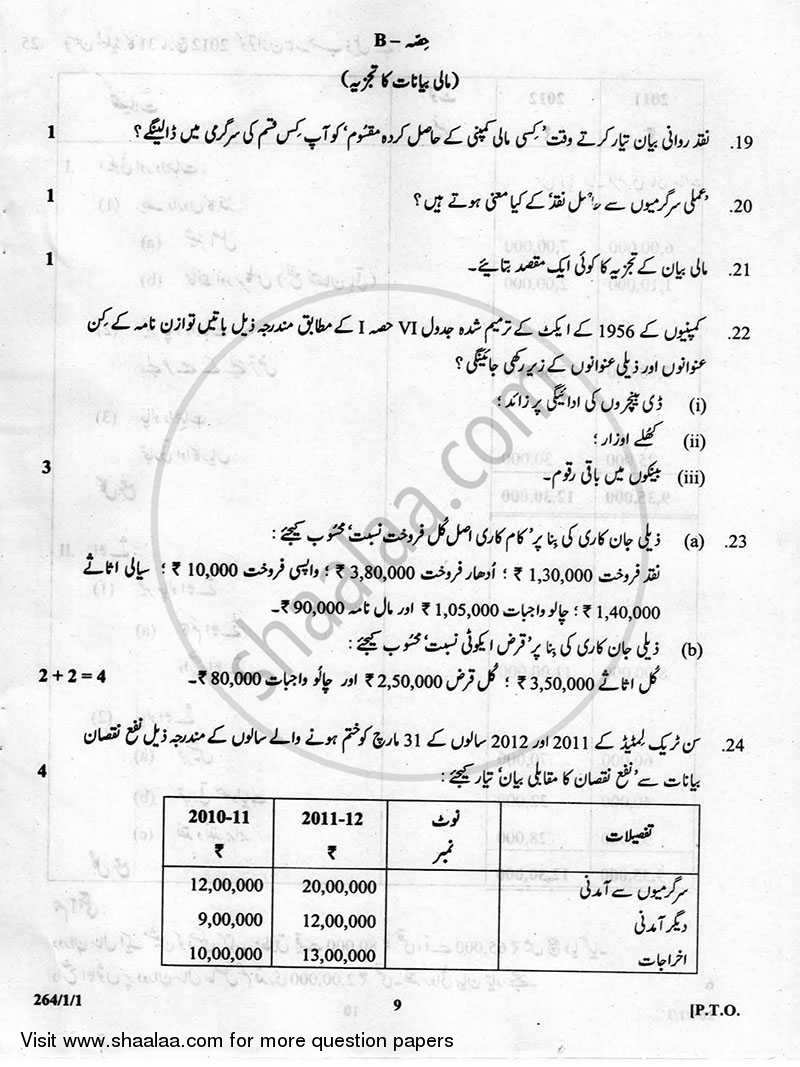 حصّہ – B
(مالی بیانات کا تجزیہ)
19. نقد روانی بیان تیار کرتے وقت ’کسی مالی کمپنی کے حاصل کردہ مقسُوم‘ کو آپ کِس قسم کی سرگرمی میں ڈالینگے؟ 1
20. ’عملی سرگرمیوں سے نقد‘ کے کیا معنی ہوتے ہیں؟ 1
21. مالی بیان کے تجزیہ کا کوئی ایک مقصد بتائیے۔ 1
22. کمپنیوں کے 1956 کے ایکٹ کے ترمیم شدہ جدول VI حصہ I کے مطابق مندرجہ ذیل باتیں توازن نامہ کے کِن
عنوانوں اور ذیلی عنوانوں کے زیر رکھی جائینگی؟
(i) ڈی بینچروں کی ادائیگی پر زائد؛
(ii) کھُلے اوزار؛
(iii) بینکوں میں باقی رقوم۔ 3
23. (a) ذیلی جان کاری کی بِنا پر ’کام کاری اصل کُل فروخت نسبت‘ محسُوب کیجئے:
نقد فروخت ₹ 1,30,000؛ اُدھار فروخت ₹ 3,80,000؛ واپسی فروخت ₹ 10,000؛ سیالی اثاثے
₹ 1,40,000؛ چالو واجبات ₹ 1,05,000 اور مال نامہ ₹ 90,000۔
(b) ذیلی جان کاری کی بِنا پر ’قرض ایکوٹی نسبت‘ محسُوب کیجئے:
کُل اثاثے ₹ 3,50,000؛ کُل قرض ₹ 2,50,000 اور چالو واجبات ₹ 80,000۔ 2 + 2 = 4
24. سن ٹریک لمٹیڈ کے 2011 اور 2012 سالوں کے 31 مارچ کو ختم ہونے والے سالوں کے مندرجہ ذیل نفع نقصان
بیانات سے ’نفع نقصان کا مقابلی بیان‘ تیار کیجئے: 4
تفصیلات نوٹ نمبر 2011-12 ₹ 2010-11 ₹
سرگرمیوں سے آمدنی 20,00,000 12,00,000
دیگر آمدنی 12,00,000 9,00,000
اخراجات 13,00,000 10,00,000
264/1/1 9 [P.T.O.
Visit www.shaalaa.com for more question papers
shaalaa.com